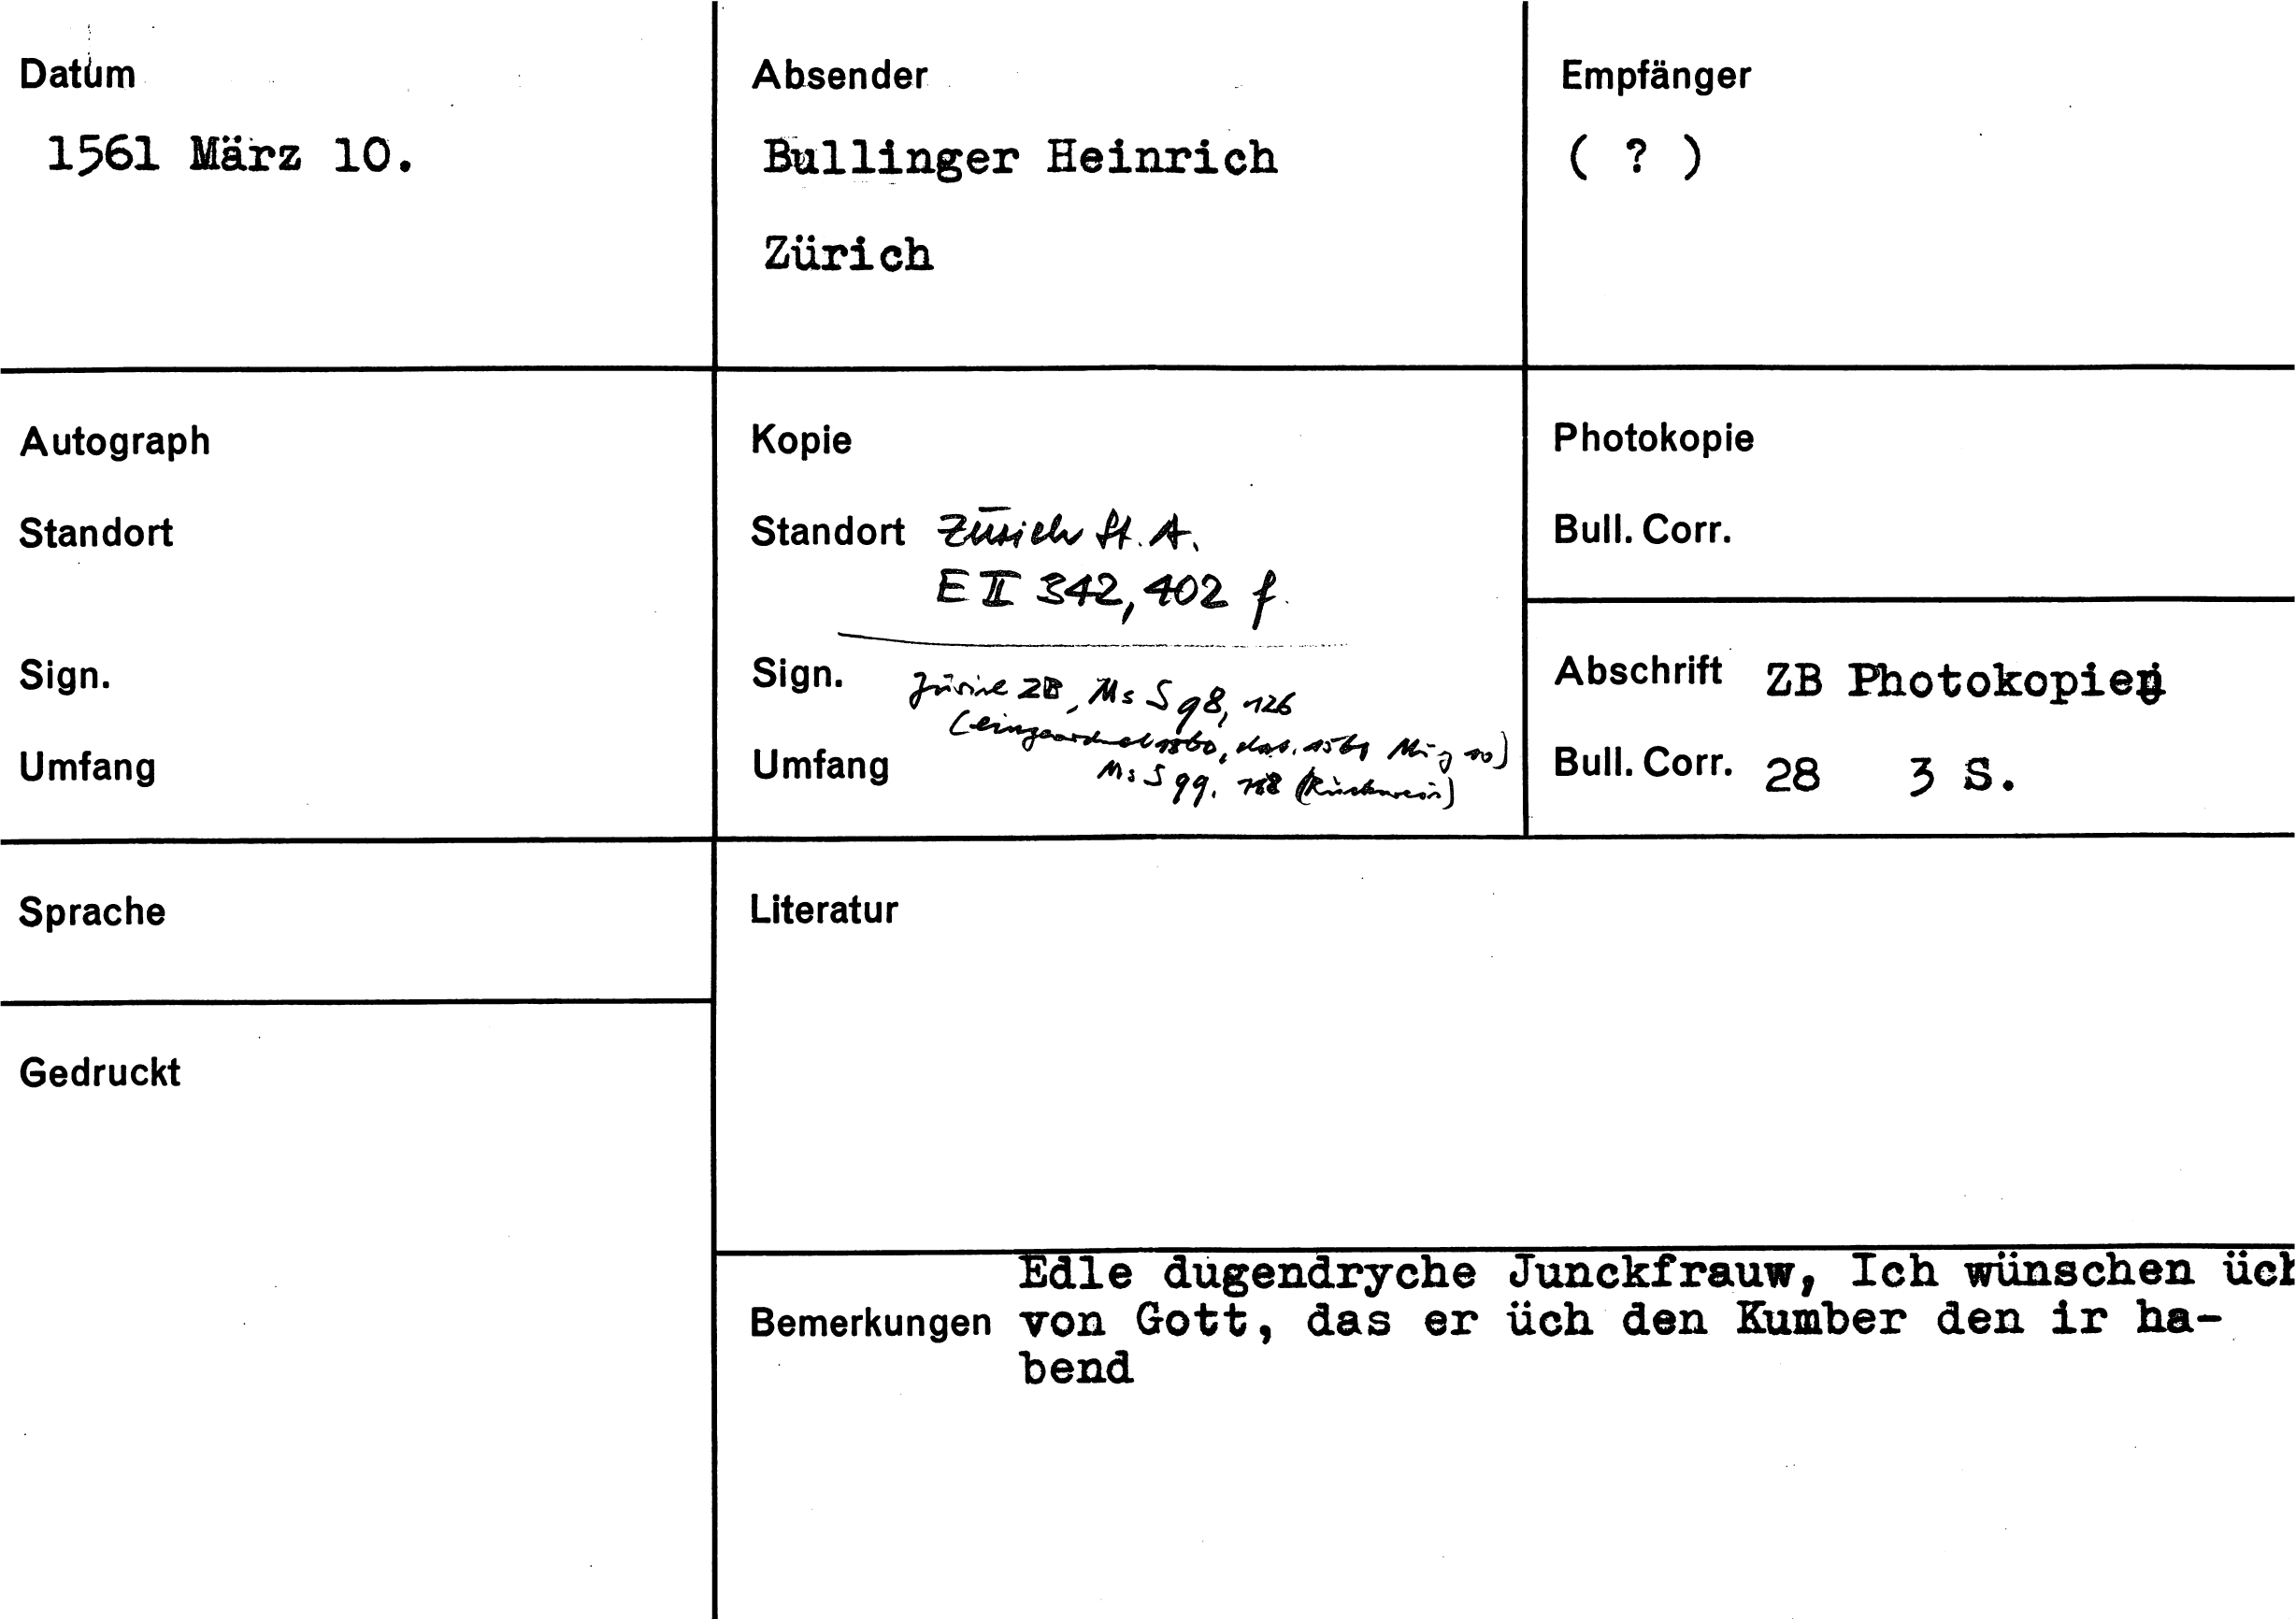 Datum
1561 März 10.
Absender
Bullinger Heinrich
Zürich
Empfänger
( ? )
Autograph
Standort
Sign.
Umfang
Kopie
Standort Zürich St. A.
E II 342, 402 f.
Sign. Zürich ZB, Ms S 98, 126
(eingeordnet 1560, dat. 1561 März 10)
Umfang Ms S 99, (Rückweis)
Photokopie
Bull. Corr.
Abschrift ZB Photokopien
Bull. Corr. 28 3 S.
Sprache
Gedruckt
Literatur
Edle dugendryche Junckfrauw, Ich wünschen üch
Bemerkungen von Gott, das er üch den Kumber den ir ha-
bend